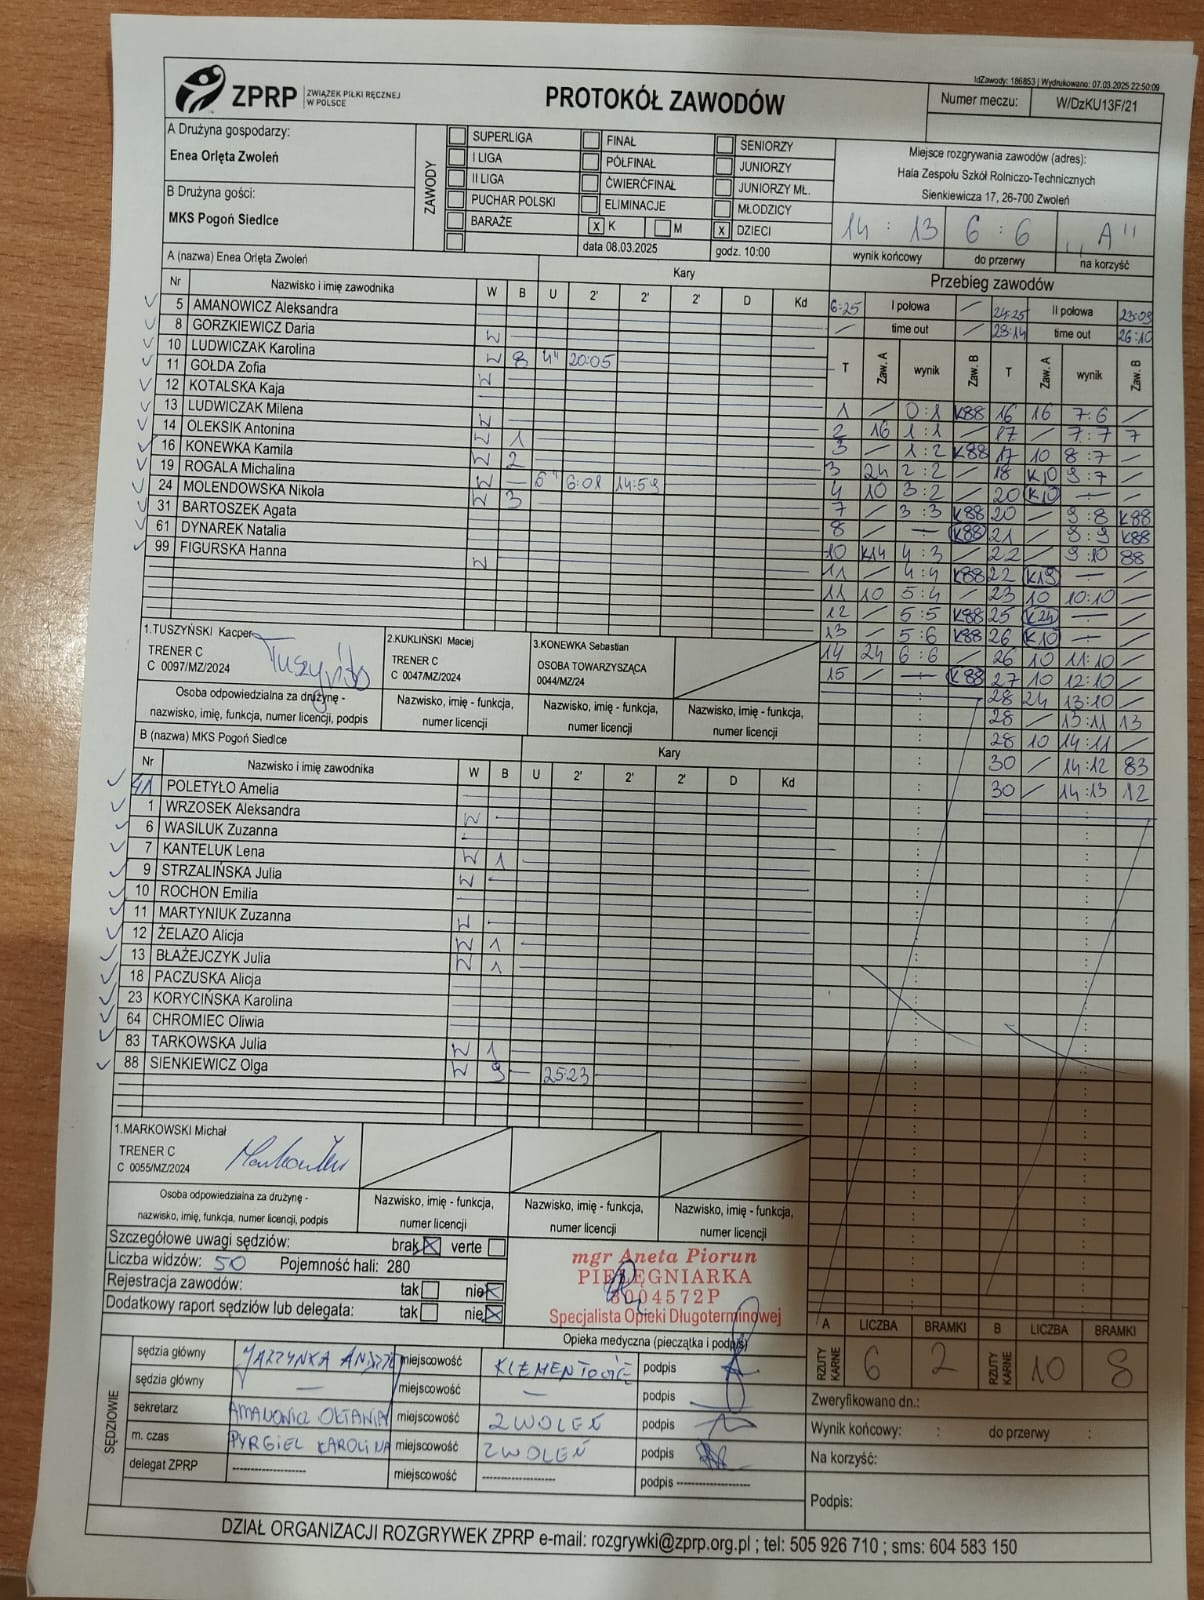 IdZawody: 186853 | Wydrukowano: 07.03.2025 22:50:09
ZPRP ZWIĄZEK PIŁKI RĘCZNEJ W POLSCE
PROTOKÓŁ ZAWODÓW
Numer meczu: W/DzKU13F/21
A Drużyna gospodarzy:
Enea Orlęta Zwoleń
B Drużyna gości:
MKS Pogoń Siedlce
ZAWODY
SUPERLIGA FINAŁ SENIORZY
I LIGA PÓŁFINAŁ JUNIORZY
II LIGA ĆWIERĆFINAŁ JUNIORZY MŁ.
PUCHAR POLSKI ELIMINACJE MŁODZICY
BARAŻE x K M x DZIECI
data 08.03.2025 godz. 10:00
Miejsce rozgrywania zawodów (adres):
Hala Zespołu Szkół Rolniczo-Technicznych
Sienkiewicza 17, 26-700 Zwoleń
14 : 13 6 : 6 "A"
wynik końcowy do przerwy na korzyść
A (nazwa) Enea Orlęta Zwoleń Kary
Nr Nazwisko i imię zawodnika W B U 2' 2' 2' D Kd
5 AMANOWICZ Aleksandra
8 GORZKIEWICZ Daria W
10 LUDWICZAK Karolina W 8 4" 20:05
11 GOŁDA Zofia W
12 KOTALSKA Kaja
13 LUDWICZAK Milena W
14 OLEKSIK Antonina W 1
16 KONEWKA Kamila W 2
19 ROGALA Michalina W — 6" 6:01 14:59
24 MOLENDOWSKA Nikola W 3
31 BARTOSZEK Agata
61 DYNAREK Natalia
99 FIGURSKA Hanna W
1.TUSZYŃSKI Kacper
TRENER C
C 0097/MZ/2024
2.KUKLIŃSKI Maciej
TRENER C
C 0047/MZ/2024
3.KONEWKA Sebastian
OSOBA TOWARZYSZĄCA
0044/MZ/24
Osoba odpowiedzialna za drużynę -
nazwisko, imię, funkcja, numer licencji, podpis
Nazwisko, imię - funkcja,
numer licencji
Nazwisko, imię - funkcja,
numer licencji
Nazwisko, imię - funkcja,
numer licencji
B (nazwa) MKS Pogoń Siedlce Kary
Nr Nazwisko i imię zawodnika W B U 2' 2' 2' D Kd
41 POLETYŁO Amelia
1 WRZOSEK Aleksandra W
6 WASILUK Zuzanna
7 KANTELUK Lena W 1
9 STRZALIŃSKA Julia W
10 ROCHON Emilia
11 MARTYNIUK Zuzanna W
12 ŻELAZO Alicja W 1
13 BŁAŻEJCZYK Julia W 1
18 PACZUSKA Alicja
23 KORYCIŃSKA Karolina
64 CHROMIEC Oliwia
83 TARKOWSKA Julia W 1
88 SIENKIEWICZ Olga W 9 — 25:23
1.MARKOWSKI Michał
TRENER C
C 0055/MZ/2024
Osoba odpowiedzialna za drużynę -
nazwisko, imię, funkcja, numer licencji, podpis
Nazwisko, imię - funkcja,
numer licencji
Nazwisko, imię - funkcja,
numer licencji
Nazwisko, imię - funkcja,
numer licencji
Przebieg zawodów
6:25 I połowa / 24:25 II połowa 23:09
/ time out 29:14 time out 26:10
T Zaw. A wynik Zaw. B T Zaw. A wynik Zaw. B
1 / 0:1 K88 16 16 7:6 /
2 16 1:1 / 17 / 7:7 7
3 / 1:2 K88 17 10 8:7 /
3 24 2:2 / 18 K10 9:7 /
4 10 3:2 / 20 K10 — /
7 / 3:3 K88 20 / 9:8 K88
8 / — K88 21 / 9:9 K88
10 K14 4:3 / 22 / 9:10 88
11 / 4:4 K88 22 K19 — /
11 10 5:4 / 23 10 10:10 /
12 / 5:5 K88 25 K24 — /
13 / 5:6 K88 26 K10 — /
14 24 6:6 / 26 10 11:10 /
15 / — K88 27 10 12:10 /
28 24 13:10 /
28 / 13:11 13
28 10 14:11 /
30 / 14:12 83
30 / 14:13 12
Szczegółowe uwagi sędziów: brak verte
Liczba widzów: 50 Pojemność hali: 280
Rejestracja zawodów: tak nie
Dodatkowy raport sędziów lub delegata: tak nie
mgr Aneta Piorun
PIELĘGNIARKA
8004572P
Specjalista Opieki Długoterminowej
Opieka medyczna (pieczątka i podpis)
A RZUTY KARNE LICZBA BRAMKI B RZUTY KARNE LICZBA BRAMKI
6 2 10 8
SĘDZIOWIE
sędzia główny miejscowość KLEMENTOWICE podpis
sędzia główny — miejscowość — podpis
sekretarz miejscowość ZWOLEŃ podpis
m. czas PYRGIEL KAROLINA miejscowość ZWOLEŃ podpis
delegat ZPRP ---------------- miejscowość ---------------- podpis ----------------
Zweryfikowano dn.:
Wynik końcowy: : do przerwy :
Na korzyść:
Podpis:
DZIAŁ ORGANIZACJI ROZGRYWEK ZPRP e-mail: rozgrywki@zprp.org.pl ; tel: 505 926 710 ; sms: 604 583 150